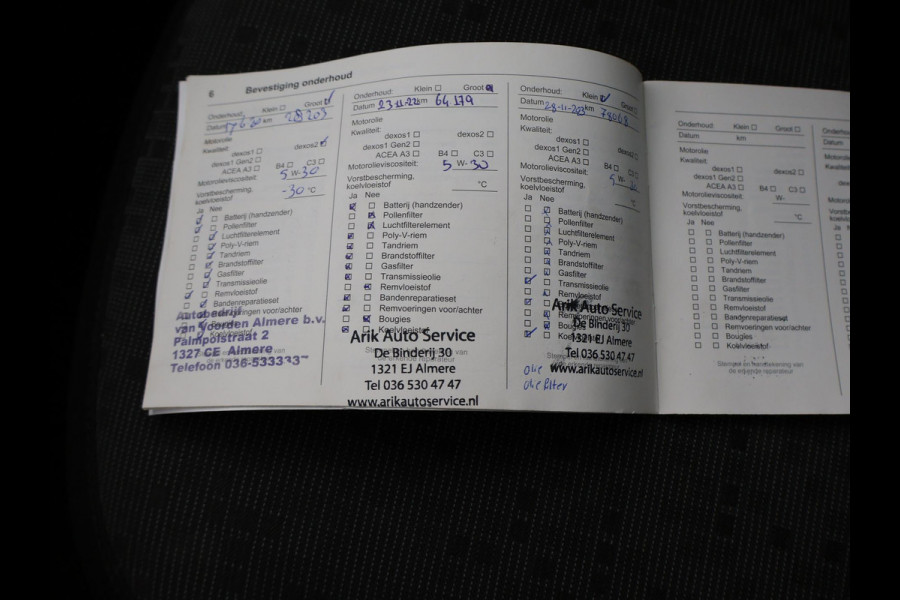 6 Bevestiging onderhoud
Onderhoud: Klein Groot
Datum 17-6-20 km 28203
Motorolie
Kwaliteit: dexos2
dexos1
dexos1 Gen2
ACEA A3 B4 C3
Motorolieviscositeit: 5 W-30
Vorstbescherming, -30 °C
koelvloeistof
Ja Nee
Batterij (handzender)
Pollenfilter
Luchtfilterelement
Poly-V-riem
Tandriem
Brandstoffilter
Gasfilter
Transmissieolie
Remvloeistof
Bandenreparatieset
Remvoeringen voor/achter
Autobedrijf
van Voorden Almere b.v.
Palmpolstraat 2
1327 CE Almere
Telefoon 036-533333
Onderhoud: Klein Groot
Datum 23-11-22 km 64179
Motorolie
Kwaliteit:
dexos1 dexos2
dexos1 Gen2
ACEA A3 B4 C3
Motorolieviscositeit: 5 W-30
Vorstbescherming, °C
koelvloeistof
Ja Nee
Batterij (handzender)
Pollenfilter
Luchtfilterelement
Poly-V-riem
Tandriem
Brandstoffilter
Gasfilter
Transmissieolie
Remvloeistof
Bandenreparatieset
Remvoeringen voor/achter
Bougies
Koelvloeistof
Arik Auto Service
De Binderij 30
1321 EJ Almere
Tel 036 530 47 47
www.arikautoservice.nl
Onderhoud: Klein Groot
Datum 28-11-203 km 78068
Motorolie
Kwaliteit:
dexos1 dexos2
dexos1 Gen2
ACEA A3 B4 C3
Motorolieviscositeit: 5 W-
Vorstbescherming, °C
koelvloeistof
Ja Nee
Batterij (handzender)
Pollenfilter
Luchtfilterelement
Poly-V-riem
Tandriem
Brandstoffilter
Gasfilter
Transmissieolie
Remvloeistof
Remvoeringen voor/achter
Bougies
Arik Auto Service
De Binderij 30
1321 EJ Almere
Tel 036 530 47 47
www.arikautoservice.nl
olie
oliefilter
Onderhoud: Klein Groot
Datum km
Motorolie
Kwaliteit:
dexos1 dexos2
dexos1 Gen2
ACEA A3 B4 C3
Motorolieviscositeit: W-
Vorstbescherming, °C
koelvloeistof
Ja Nee
Batterij (handzender)
Pollenfilter
Luchtfilterelement
Poly-V-riem
Tandriem
Brandstoffilter
Gasfilter
Transmissieolie
Remvloeistof
Bandenreparatieset
Remvoeringen voor/achter
Bougies
Koelvloeistof
Stempel en handtekening van
de erkende reparateur